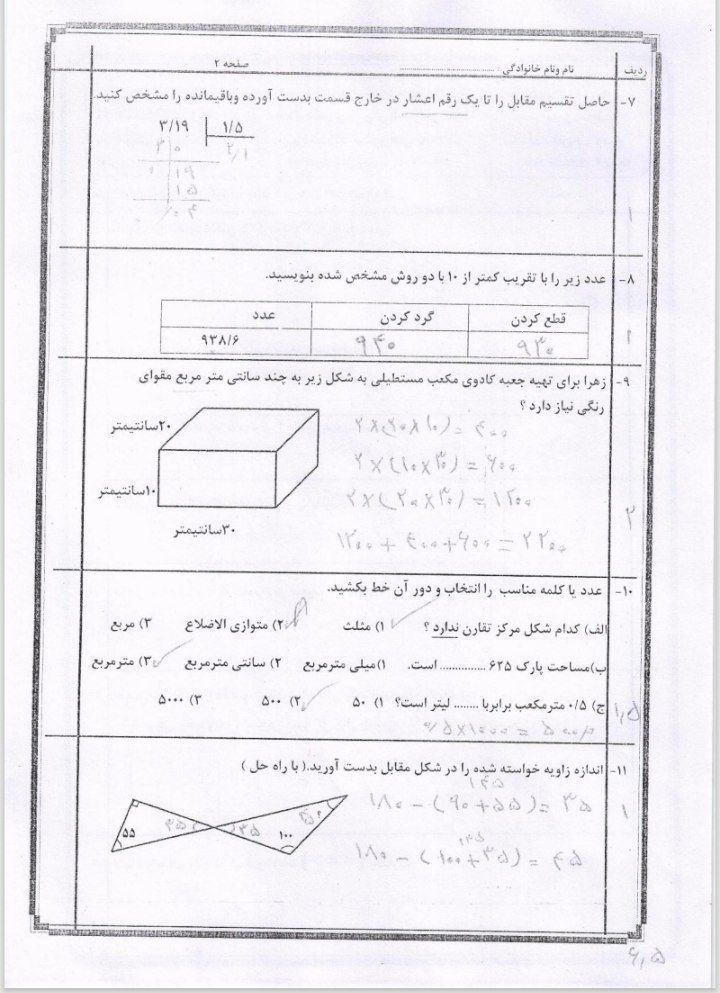 ردیف نام ونام خانوادگی : ........................ صفحه ۲
۷- حاصل تقسیم مقابل را تا یک رقم اعشار در خارج قسمت بدست آورده وباقیمانده را مشخص کنید.
۳/۱۹ ۱/۵
۳ ۰ ۲/۱
۰ ۱۹
۱۵
۰/۰۴
۱
۸- عدد زیر را با تقریب کمتر از ۱۰ با دو روش مشخص شده بنویسید.
قطع کردن گرد کردن عدد
۹۳۰ ۹۴۰ ۹۳۸/۶
۹- زهرا برای تهیه جعبه کادوی مکعب مستطیلی به شکل زیر به چند سانتی متر مربع مقوای
رنگی نیاز دارد ؟
۲۰سانتیمتر
۱۰سانتیمتر
۳۰سانتیمتر
۲×(۲۰×۱۰)=۴۰۰
۲×(۱۰×۳۰)=۶۰۰
۲×(۲۰×۳۰)=۱۲۰۰
۱۲۰۰+۴۰۰+۶۰۰=۲۲۰۰
۲
۱۰- عدد یا کلمه مناسب را انتخاب و دور آن خط بکشید.
الف) کدام شکل مرکز تقارن ندارد ؟ ۱) مثلث ۲) متوازی الاضلاع ۳) مربع
ب)مساحت پارک ۶۲۵ .............. است. ۱)میلی مترمربع ۲) سانتی مترمربع ۳) مترمربع
ج) ۰/۵ مترمکعب برابربا ........ لیتر است؟ ۱) ۵۰ ۲) ۵۰۰ ۳) ۵۰۰۰
۱,۵
۱۱- اندازه زاویه خواسته شده را در شکل مقابل بدست آورید.( با راه حل )
۱۴۵
۱۸۰-(۹۰+۵۵)=۳۵
۱۳۵
۱۸۰-(۱۰۰+۳۵)=۴۵
۵۵ ۳۵ ۳۵ ۱۰۰ ۴۵ ؟
۱
۶,۵